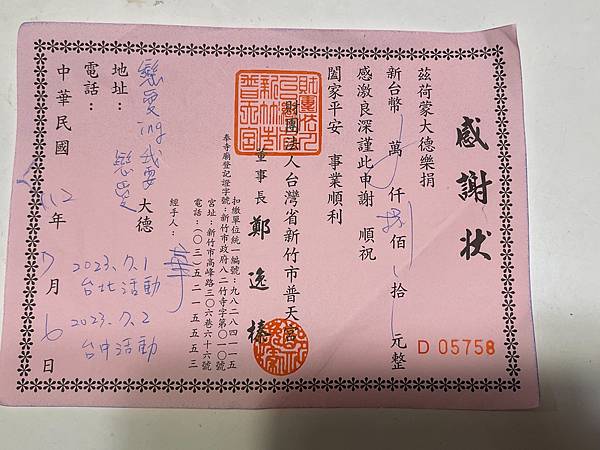 感謝狀
茲荷蒙大德樂捐
新台幣 萬 仟 捌 佰 拾 元整
感激良深謹此申謝 順祝
闔家平安 事業順利
財團法人台灣省新竹市普天宮
董事長 鄭逸榛
奉寺廟登記證字號：新竹市政府八二竹寺字第〇一〇號
扣繳單位統一編號：九八二八四一一五
宮址：新竹市高峰路三〇六巷六十六號
電話：（〇三）五二一五五五三
經手人：華
戀愛ing我要戀愛 大德
地址：
電話：
中華民國 112 年 7 月 6 日
2023.7.1
台北活動
2023.7.2
台中活動
D 05758